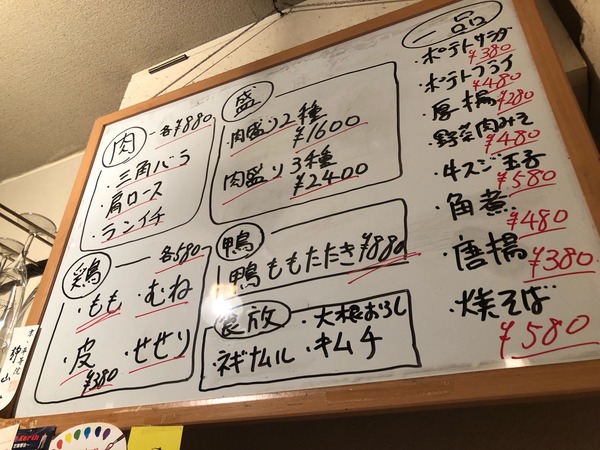 肉
各¥880
・三角バラ
・肩ロース
・ランイチ
盛
肉盛り2種
¥1600
肉盛り3種
¥2400
鶏
各580
・もも ・むね
・皮 ・せせり
¥380
鴨
鴨ももたたき ¥880
食放
・大根おろし
・ネギナムル ・キムチ
一品
・ポテトサラダ
¥380
・ポテトフライ
¥480
・厚揚
¥280
・野菜肉みそ
¥480
・牛スジ玉子
¥580
・角煮
¥480
・唐揚
¥380
・焼そば
¥580